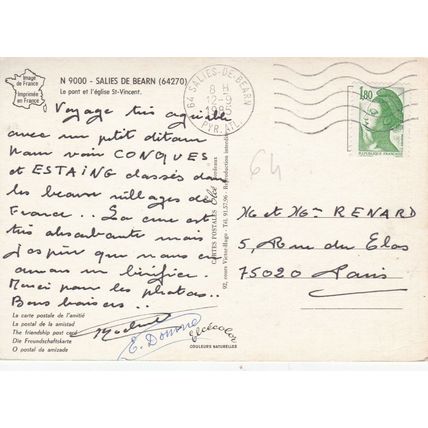 Image
de France
Imprimée
en France
N 9000 - SALIES DE BEARN (64270)
Le pont et l'église St-Vincent.
64 SALIES-DE-BEARN
8 H
12-9
1985
PYR. ATL.
1,80
REPUBLIQUE FRANCAISE
Voyage très agréable
avec un petit détour
pour voir CONQUES
et ESTAING classés dans
les beaux villages de
France... La cure est
très absorbante mais
j'espère que nous en
aurons un bénéfice.
Merci pour les photos..
Bons baisers..
64
CARTES POSTALES Elcé Bordeaux
92, cours Victor-Hugo - Tél. 91.57.96 - Reproduction interdite
M et Mme RENARD
5, Rue du Clos
75020 Paris
La carte postale de l'amitié
La postal de la amistad
The friendship post card
Die Freundschaftskarte
O postal da amizade
Elcécolor
COULEURS NATURELLES